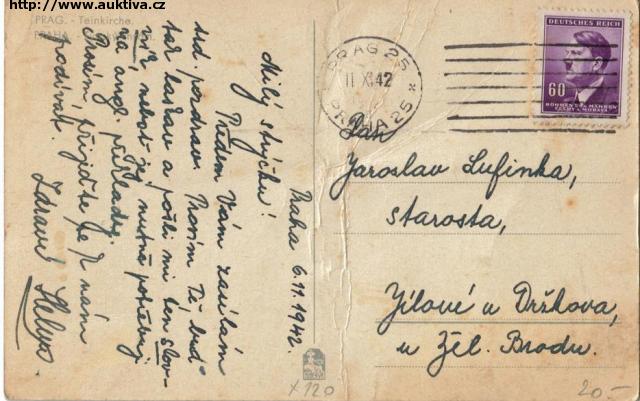 http://www.auktiva.cz
PRAG. - Teinkirche.
PRAHA
Praha 6.11.1942.
Milý strýčku!
Předem Vám zasílám
srd. pozdrav. Prosím Tě buď
tak laskav a pošli mi ten slov-
ník neboť jej nutně potřebuji
na angl. překlady.
Prosím, přijďte se k nám
podívat.
Zdraví
PRAG 25
II XI 42
PRAHA 25
DEUTSCHES REICH
60
BÖHMEN UND MÄHREN
ČECHY A MORAVA
Pan
Jaroslav Lufinka,
starosta,
Jílové u Držkova,
u Žel. Brodu.
x 120
20.-